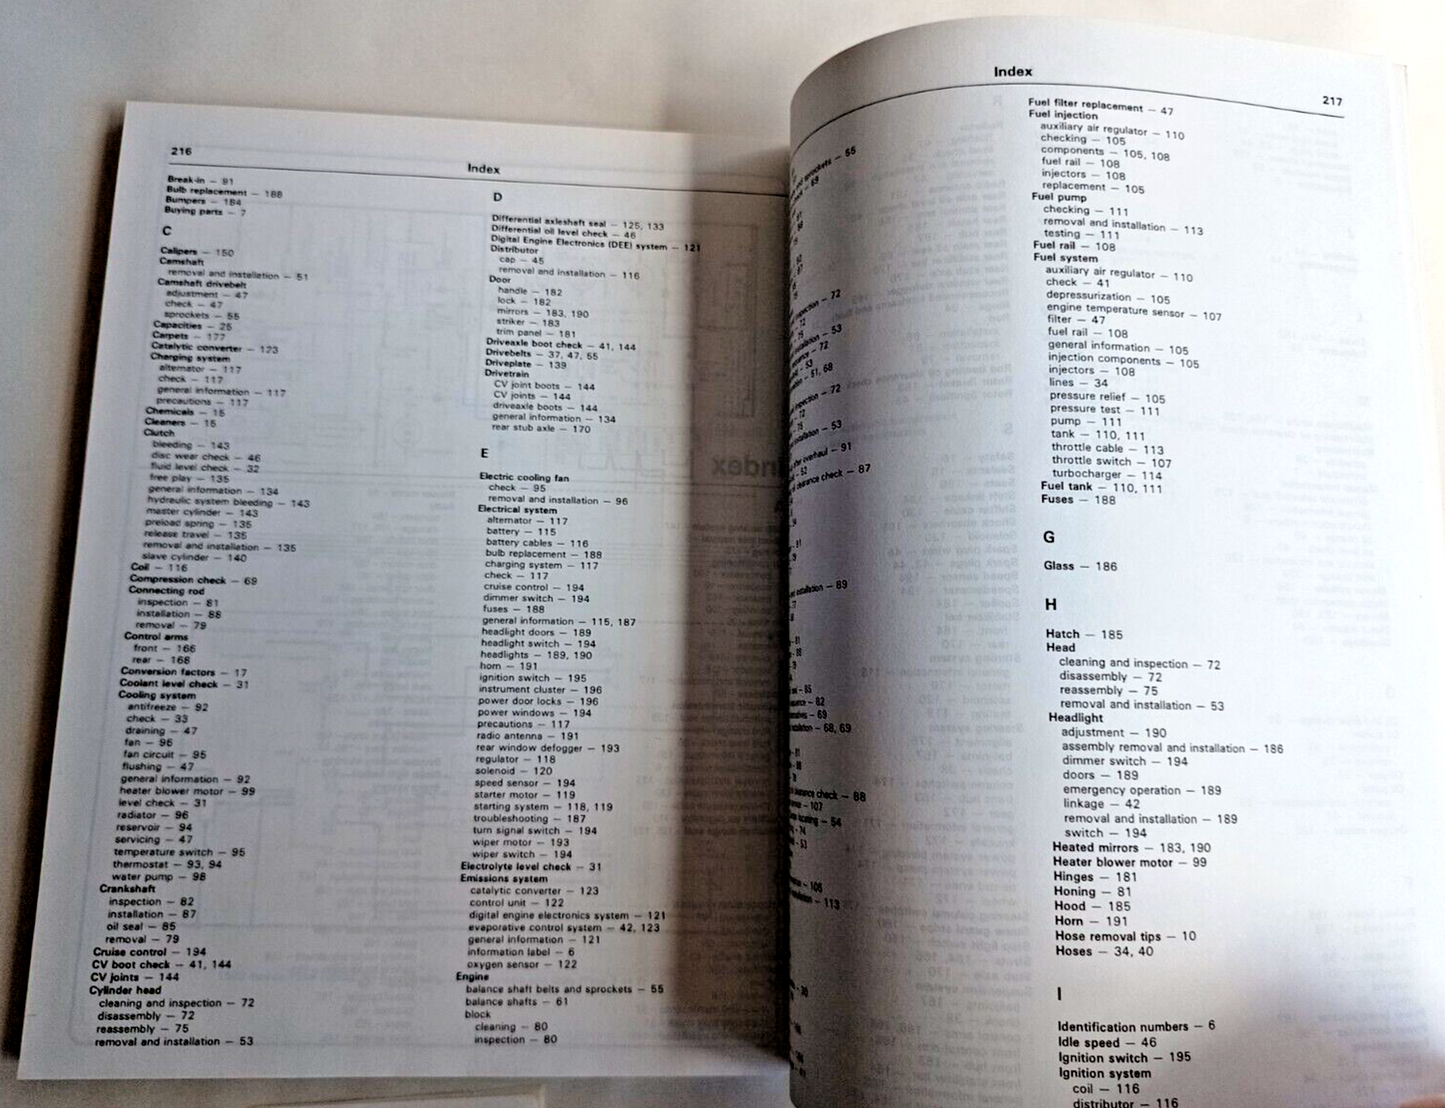 216
Index
Break-in — 91
Bulb replacement — 188
Bumpers — 184
Buying parts — 7
C
Calipers — 150
Camshaft
removal and installation — 51
Camshaft drivebelt
adjustment — 47
check — 47
sprockets — 55
Capacities — 25
Carpets — 177
Catalytic converter — 123
Charging system
alternator — 117
check — 117
general information — 117
precautions — 117
Chemicals — 15
Cleaners — 15
Clutch
bleeding — 143
disc wear check — 46
fluid level check — 32
free play — 135
general information — 134
hydraulic system bleeding — 143
master cylinder — 143
preload spring — 135
release travel — 135
removal and installation — 135
slave cylinder — 140
Coil — 116
Compression check — 69
Connecting rod
inspection — 81
installation — 88
removal — 79
Control arms
front — 166
rear — 168
Conversion factors — 17
Coolant level check — 31
Cooling system
antifreeze — 92
check — 33
draining — 47
fan — 96
fan circuit — 95
flushing — 47
general information — 92
heater blower motor — 99
level check — 31
radiator — 96
reservoir — 94
servicing — 47
temperature switch — 95
thermostat — 93, 94
water pump — 98
Crankshaft
inspection — 82
installation — 87
oil seal — 85
removal — 79
Cruise control — 194
CV boot check — 41, 144
CV joints — 144
Cylinder head
cleaning and inspection — 72
disassembly — 72
reassembly — 75
removal and installation — 53
D
Differential axleshaft seal — 125, 133
Differential oil level check — 46
Digital Engine Electronics (DEE) system — 121
Distributor
cap — 45
removal and installation — 116
Door
handle — 182
lock — 182
mirrors — 183, 190
striker — 183
trim panel — 181
Driveaxle boot check — 41, 144
Drivebelts — 37, 47, 55
Driveplate — 139
Drivetrain
CV joint boots — 144
CV joints — 144
driveaxle boots — 144
general information — 134
rear stub axle — 170
E
Electric cooling fan
check — 95
removal and installation — 96
Electrical system
alternator — 117
battery — 115
battery cables — 116
bulb replacement — 188
charging system — 117
check — 117
cruise control — 194
dimmer switch — 194
fuses — 188
general information — 115, 187
headlight doors — 189
headlight switch — 194
headlights — 189, 190
horn — 191
ignition switch — 195
instrument cluster — 196
power door locks — 196
power windows — 194
precautions — 117
radio antenna — 191
rear window defogger — 193
regulator — 118
solenoid — 120
speed sensor — 194
starter motor — 119
starting system — 118, 119
troubleshooting — 187
turn signal switch — 194
wiper motor — 193
wiper switch — 194
Electrolyte level check — 31
Emissions system
catalytic converter — 123
control unit — 122
digital engine electronics system — 121
evaporative control system — 42, 123
general information — 121
information label — 6
oxygen sensor — 122
Engine
balance shaft belts and sprockets — 55
balance shafts — 61
block
cleaning — 80
inspection — 80
Index
217
Fuel filter replacement — 47
Fuel injection
auxiliary air regulator — 110
checking — 105
components — 105, 108
fuel rail — 108
injectors — 108
replacement — 105
Fuel pump
checking — 111
removal and installation — 113
testing — 111
Fuel rail — 108
Fuel system
auxiliary air regulator — 110
check — 41
depressurization — 105
engine temperature sensor — 107
filter — 47
fuel rail — 108
general information — 105
injection components — 105
injectors — 108
lines — 34
pressure relief — 105
pressure test — 111
pump — 111
tank — 110, 111
throttle cable — 113
throttle switch — 107
turbocharger — 114
Fuel tank — 110, 111
Fuses — 188
G
Glass — 186
H
Hatch — 185
Head
cleaning and inspection — 72
disassembly — 72
reassembly — 75
removal and installation — 53
Headlight
adjustment — 190
assembly removal and installation — 186
dimmer switch — 194
doors — 189
emergency operation — 189
linkage — 42
removal and installation — 189
switch — 194
Heated mirrors — 183, 190
Heater blower motor — 99
Hinges — 181
Honing — 81
Hood — 185
Horn — 191
Hose removal tips — 10
Hoses — 34, 40
I
Identification numbers — 6
Idle speed — 46
Ignition switch — 195
Ignition system
coil — 116
distributor — 116